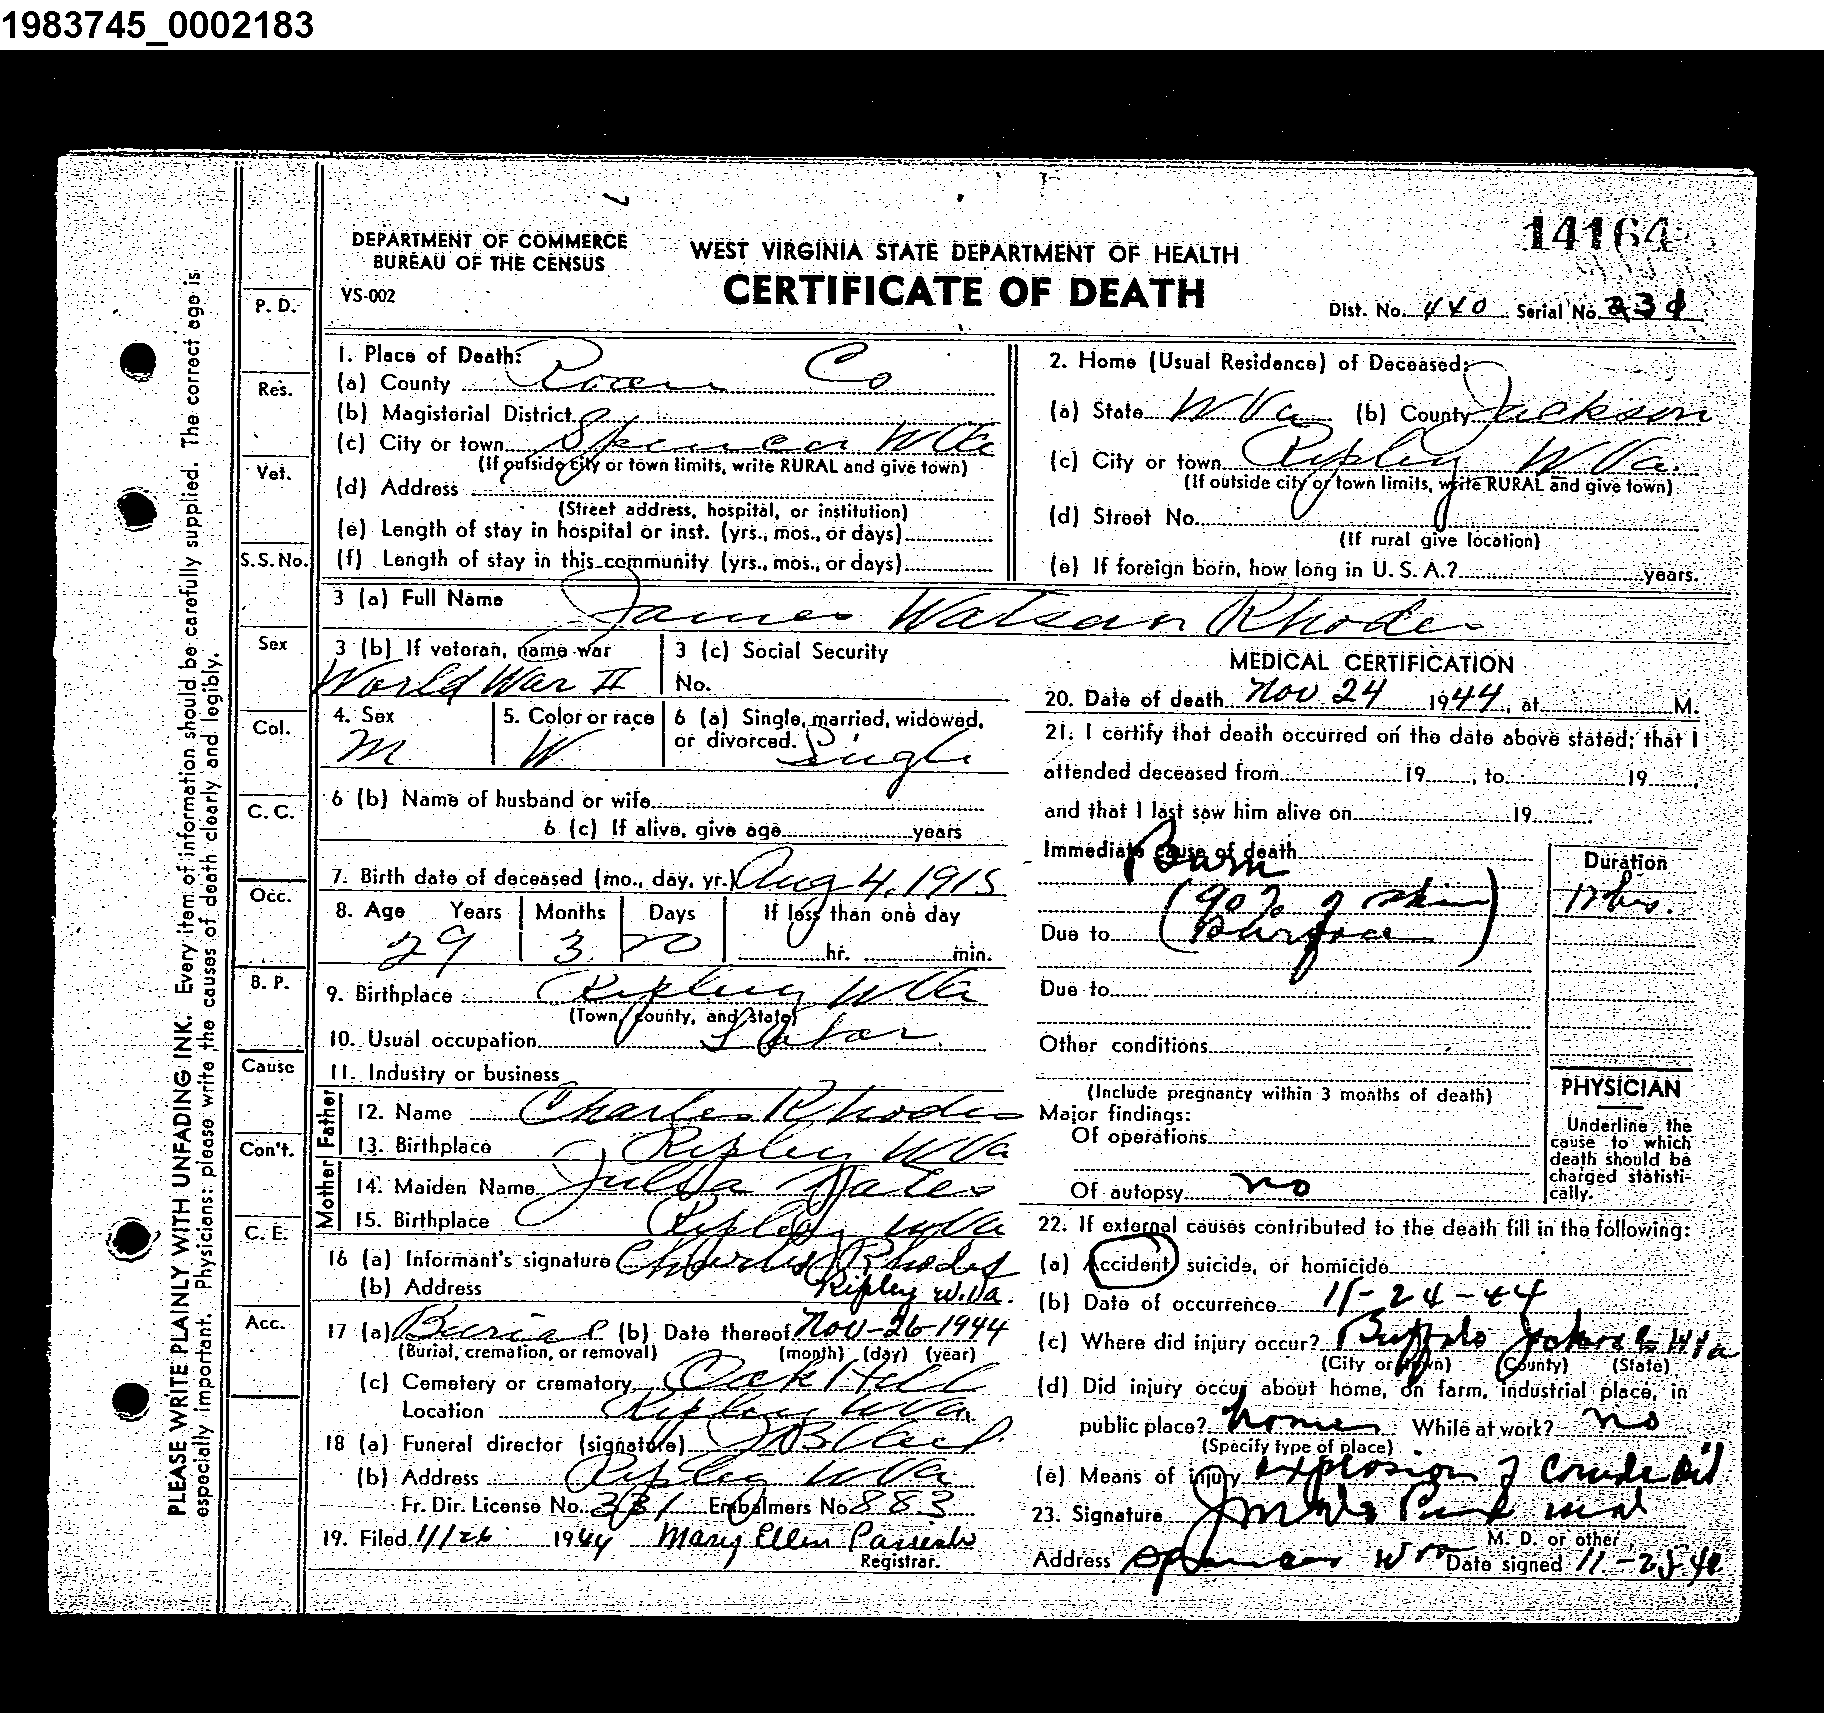 1983745_0002183
14164
DEPARTMENT OF COMMERCE
BUREAU OF THE CENSUS
VS-002
WEST VIRGINIA STATE DEPARTMENT OF HEALTH
CERTIFICATE OF DEATH
Dist. No. 440 Serial No.
PLEASE WRITE PLAINLY WITH UNFADING INK. Every item of information should be carefully supplied. The correct age is
especially important. Physicians: please write the causes of death clearly and legibly.
P. D.
Res.
Vet.
S.S.No.
Sex
Col.
C. C.
Occ.
B. P.
Cause
Con't.
C. E.
Acc.
1. Place of Death:
(a) County Roane Co
(b) Magisterial District
(c) City or town Spencer W Va
(If outside city or town limits, write RURAL and give town)
(d) Address
(Street address, hospital, or institution)
(e) Length of stay in hospital or inst. (yrs., mos., or days)
(f) Length of stay in this community (yrs., mos., or days)
2. Home (Usual Residence) of Deceased:
(a) State W Va (b) County Jackson
(c) City or town Ripley W Va.
(If outside city or town limits, write RURAL and give town)
(d) Street No.
(If rural give location)
(e) If foreign born, how long in U. S. A.? years.
3 (a) Full Name James Watson Rhodes
3 (b) If veteran, name war
World War II
3 (c) Social Security
No.
4. Sex
M
5. Color or race
W
6 (a) Single, married, widowed,
or divorced. Single
6 (b) Name of husband or wife
6 (c) If alive, give age years
7. Birth date of deceased (mo., day, yr.) Aug 4, 1915
8. Age Years Months Days If less than one day
29 3 20 hr. min.
9. Birthplace Ripley W Va
(Town, county, and state)
10. Usual occupation Labor
11. Industry or business
Father
12. Name Charles Rhodes
13. Birthplace Ripley W Va
Mother
14. Maiden Name Julia
15. Birthplace Ripley W Va
16 (a) Informant's signature Charles Rhodes
(b) Address Ripley W. Va.
17 (a) Burial (b) Date thereof Nov-26-1944
(Burial, cremation, or removal) (month) (day) (year)
(c) Cemetery or crematory Oak Hill
Location Ripley W Va.
18 (a) Funeral director (signature)
(b) Address Ripley W Va
Fr. Dir. License No. 331 Embalmers No. 883
19. Filed 11/26 1944 Mary Ellen
Registrar.
MEDICAL CERTIFICATION
20. Date of death Nov 24 1944, at M.
21. I certify that death occurred on the date above stated; that I
attended deceased from 19 , to 19 ,
and that I last saw him alive on 19 .
Immediate cause of death
Burn
(90% of skin
Due to Surface)
Due to
Other conditions
(Include pregnancy within 3 months of death)
Major findings:
Of operations
Of autopsy no
Duration
12 hrs.
PHYSICIAN
Underline the
cause to which
death should be
charged statisti-
cally.
22. If external causes contributed to the death fill in the following:
(a) Accident, suicide, or homicide
(b) Date of occurrence 11-24-44
(c) Where did injury occur? Buffalo W Va
(City or town) (County) (State)
(d) Did injury occur about home, on farm, industrial place, in
public place? home While at work? no
(Specify type of place)
(e) Means of injury explosion of Crude Oil
23. Signature
M. D. or other
Address Spencer W Va Date signed